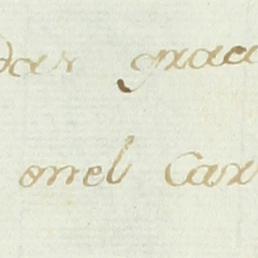 dar graci
onel Car